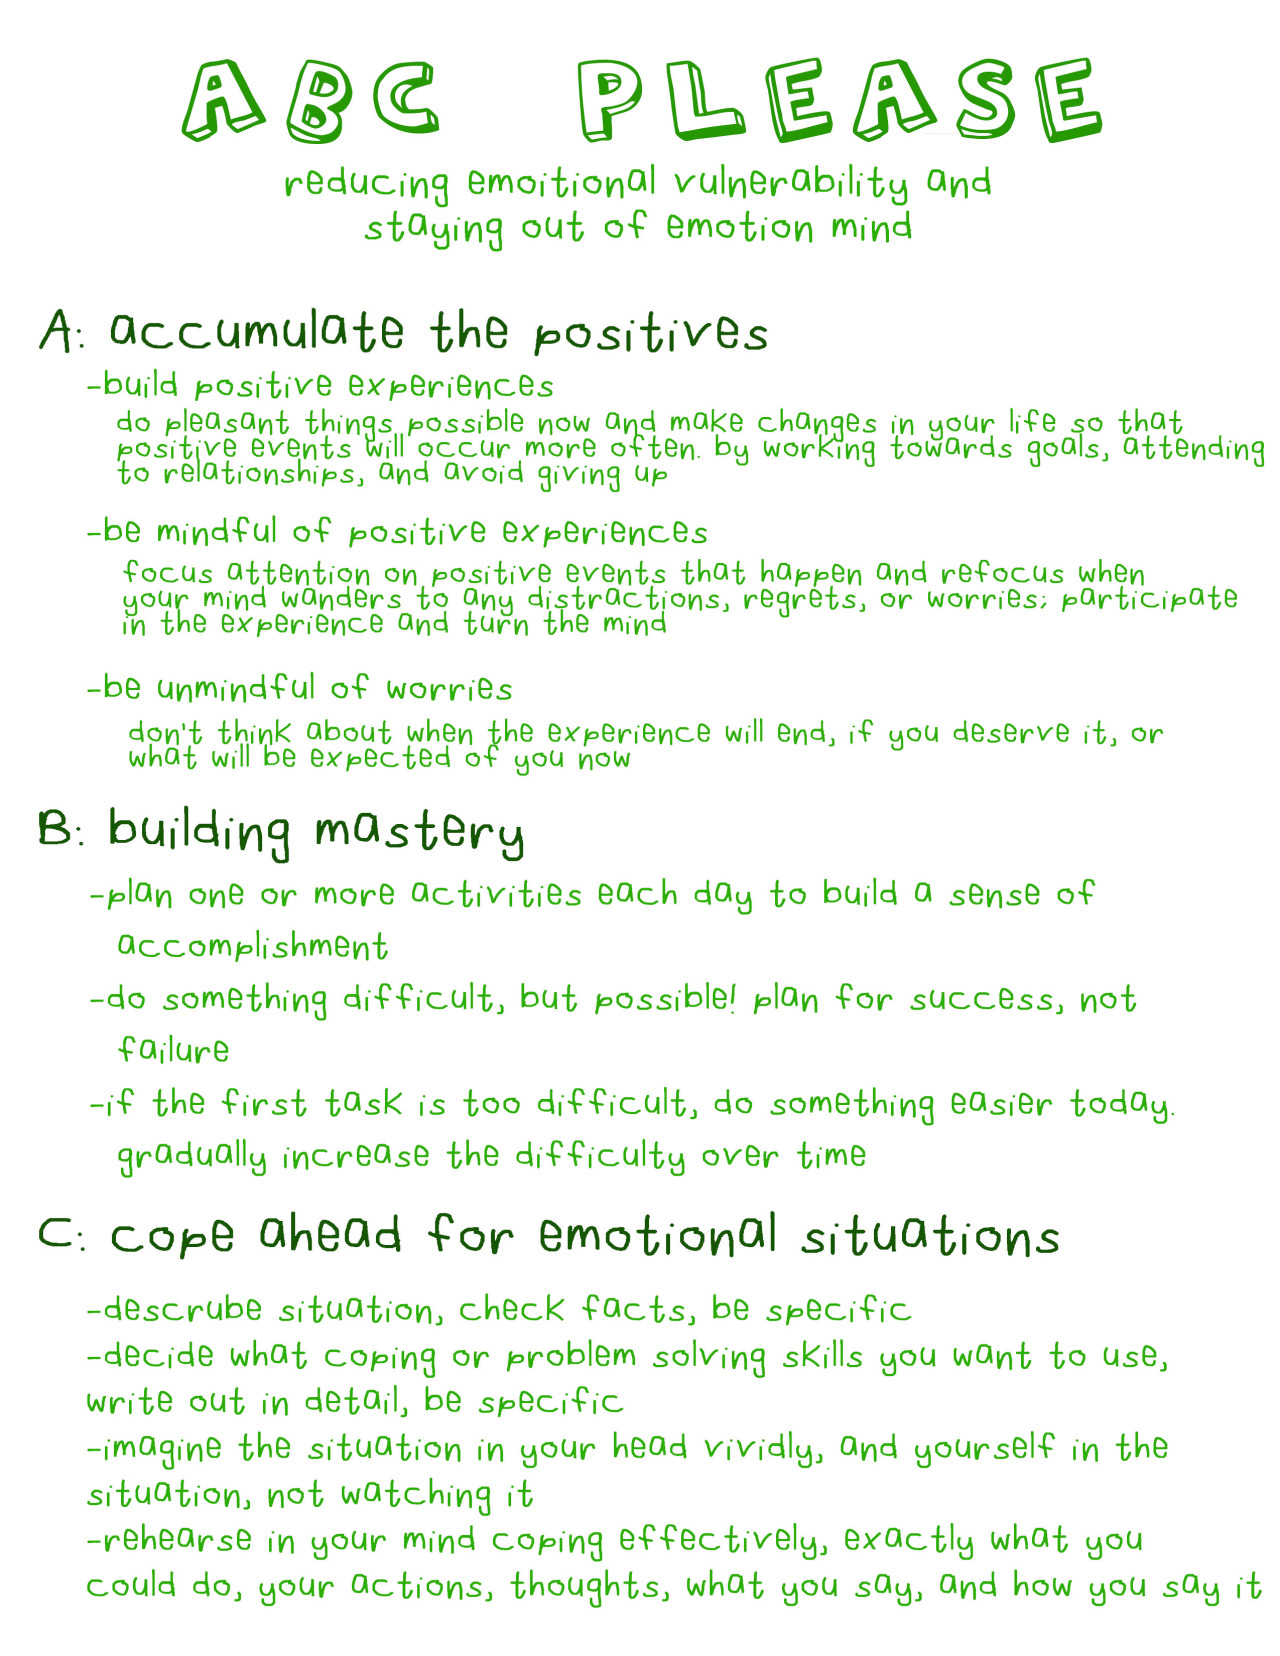 ABC PLEASE
reducing emoitional vulnerability and
staying out of emotion mind
A: accumulate the positives
-build positive experiences
do pleasant things possible now and make changes in your life so that
positive events will occur more often. by working towards goals, attending
to relationships, and avoid giving up
-be mindful of positive experiences
focus attention on positive events that happen and refocus when
your mind wanders to any distractions, regrets, or worries; participate
in the experience and turn the mind
-be unmindful of worries
don't think about when the experience will end, if you deserve it, or
what will be expected of you now
B: building mastery
-plan one or more activities each day to build a sense of
accomplishment
-do something difficult, but possible! plan for success, not
failure
-if the first task is too difficult, do something easier today.
gradually increase the difficulty over time
C: cope ahead for emotional situations
-descrube situation, check facts, be specific
-decide what coping or problem solving skills you want to use,
write out in detail, be specific
-imagine the situation in your head vividly, and yourself in the
situation, not watching it
-rehearse in your mind coping effectively, exactly what you
could do, your actions, thoughts, what you say, and how you say it